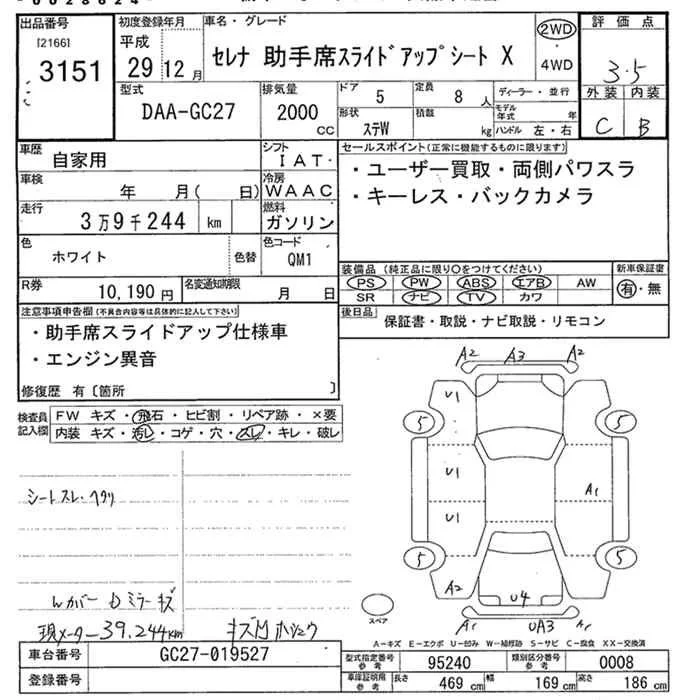 出品番号 [2166] 3151
初度登録年月 平成 29 12 月
車名・グレード セレナ 助手席スライドアップシート X
2WD 4WD
評価点 3.5
外装 内装
C B
型式 DAA-GC27
排気量 2000 CC
ドア 5 定員 8 人
形状 ステW 積載 kg
ディーラー・並行
モデル年式 年
ハンドル 左・右
車歴 自家用
シフト IAT
車検 年 月( 日)
冷房 WAAC
走行 3万9千244 km
燃料 ガソリン
色 ホワイト 色替
色コード QM1
R券 10,190 円
名変通知期限 月 日
セールスポイント(正常に機能するものに限ります)
・ユーザー買取・両側パワスラ
・キーレス・バックカメラ
装備品 (純正品に限り○をつけてください) 新車保証書
PS PW ABS エアB AW 有・無
SR ナビ TV カワ
後日品 保証書・取説・ナビ取説・リモコン
注意事項申告欄(不具合内容等は具体的に記入して下さい)
・助手席スライドアップ仕様車
・エンジン異音
修復歴 有〔箇所 〕
検査員記入欄
FW キズ・飛石・ヒビ割・リペア跡・×要
内装 キズ・汚レ・コゲ・穴・スレ・キレ・破レ
シートスレ・ヘタリ
Wカバー Dミラーキズ
現メーター39,244km
A2 A3 A2
U1
5 5
U1 A1
U1
5 5
A2 U4
スペア
A1 UA3 A1
A-キズ E-エクボ U-凹み W-補修跡 S-サビ C-腐食 XX-交換済
車台番号 GC27-019527
登録番号
型式指定番号 参考 95240 類別区分番号 参考 0008
車庫証明用 参考 長さ 469 cm 幅 169 cm 高さ 186 cm